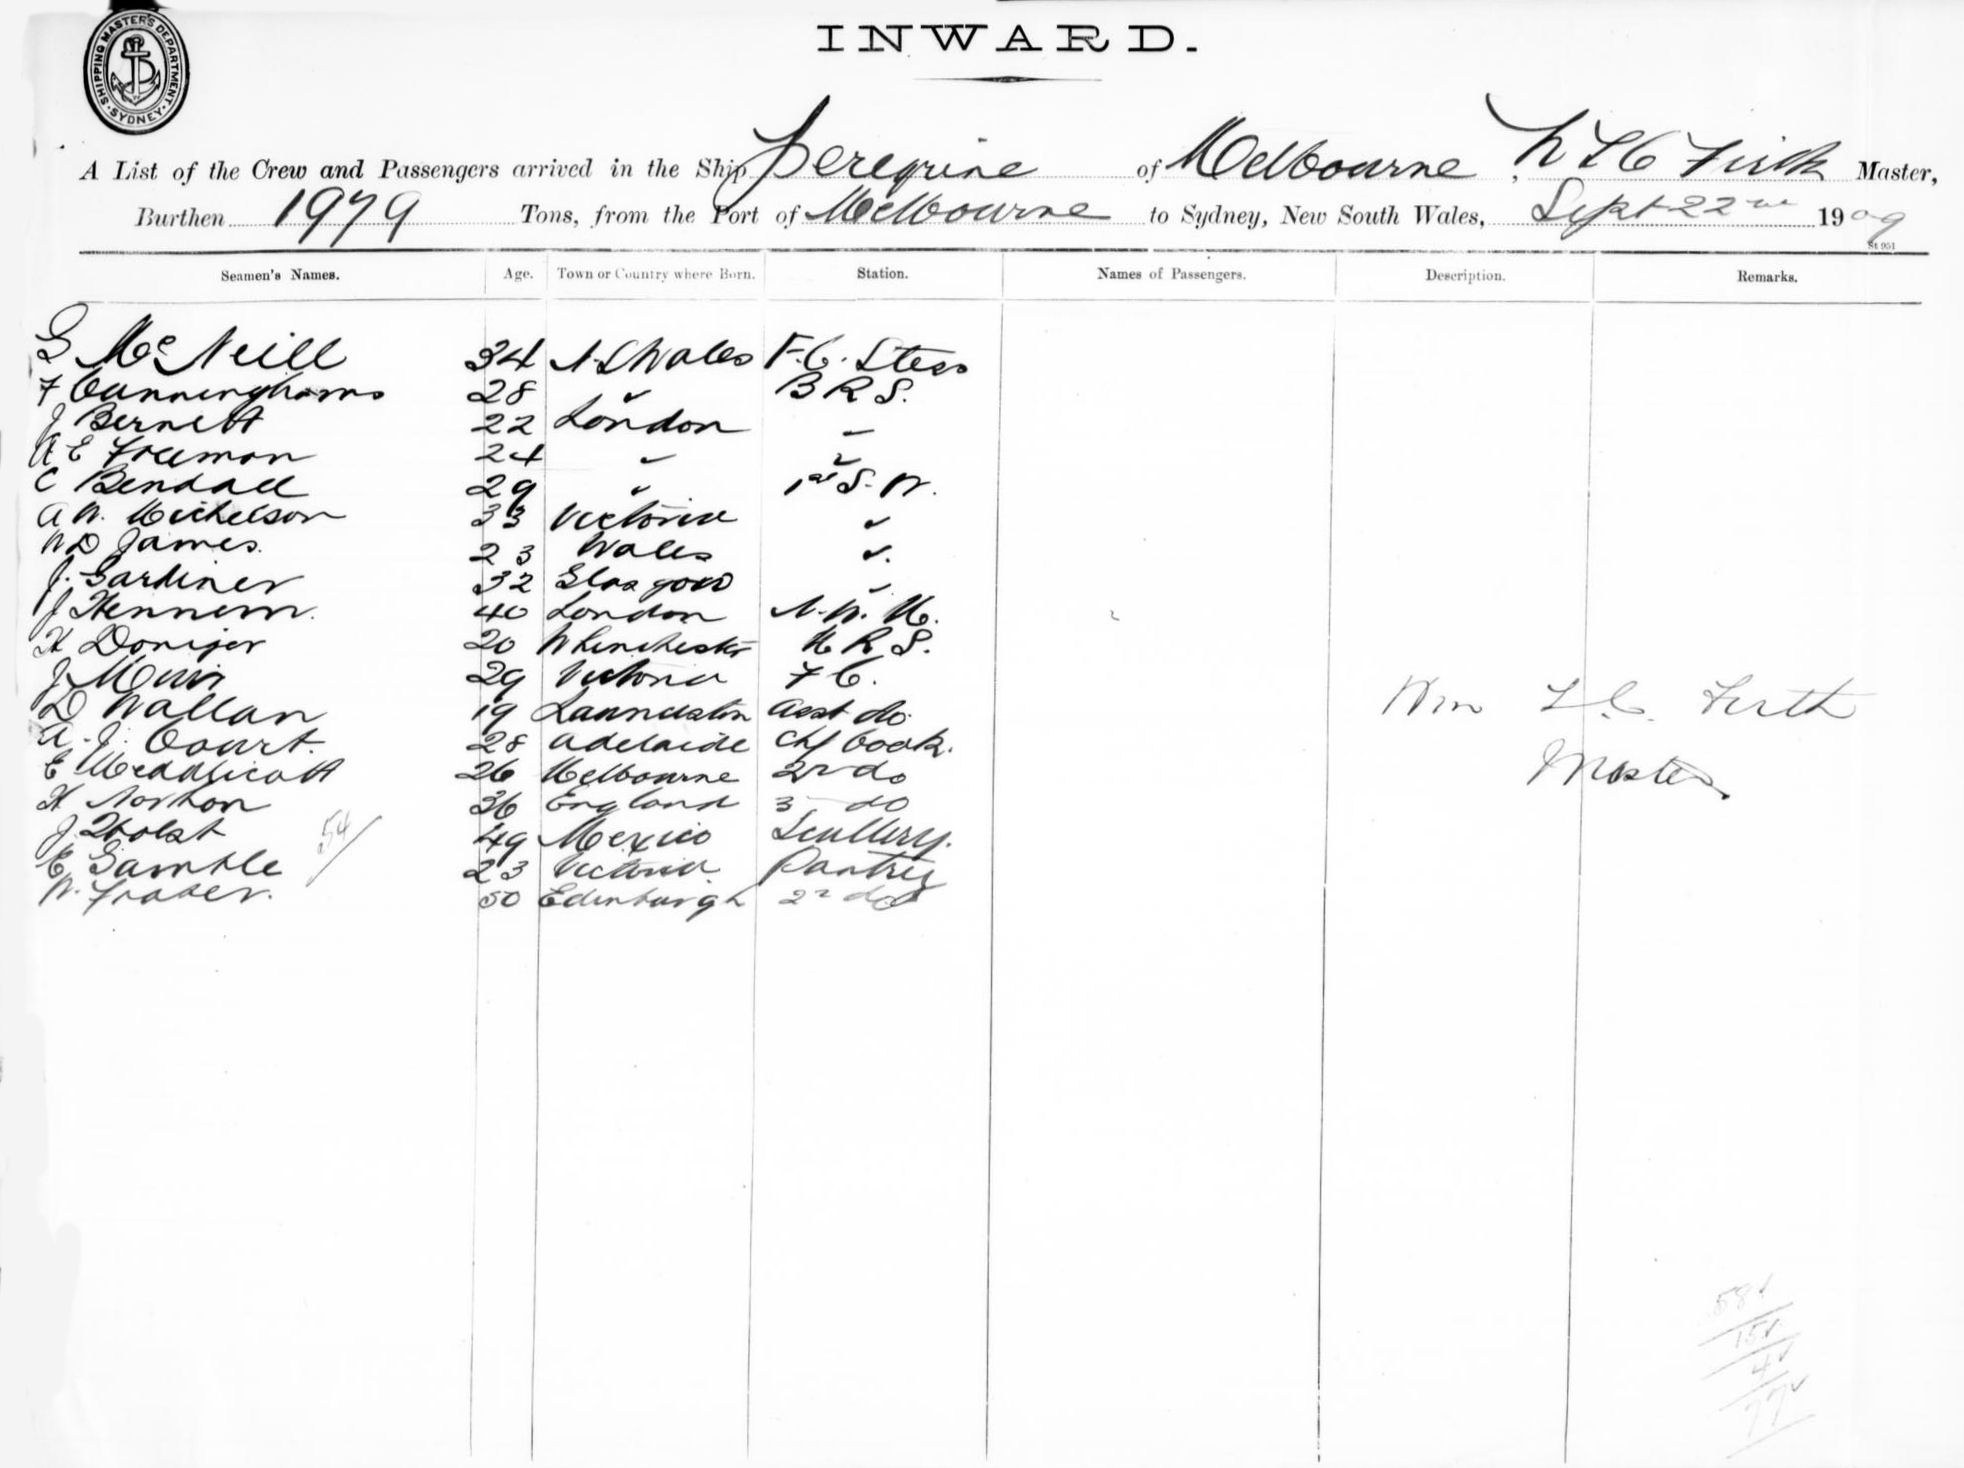 SHIPPING MASTER'S DEPARTMENT. SYDNEY
INWARD.
A List of the Crew and Passengers arrived in the Ship Peregrine of Melbourne, W L C Firth Master,
Burthen 1979 Tons, from the Port of Melbourne to Sydney, New South Wales, Sept 22nd 1909
St 951
Seamen's Names. Age. Town or Country where Born. Station. Names of Passengers. Description. Remarks.
G McNeill 34 N.S Wales F.C. Stess
F Cunninghams 28 " B R S.
J Bernett 22 London "
A E Freeman 24 " "
C Bendall 29 " 1st S. W.
A W. Michelson 33 Victoria "
W D James. 23 Wales "
J. Gardiner 32 Glasgow "
J Hennem. 40 London N. W. M.
H Doniger 20 M R S.
J Muir 29 Victoria F C.
D Wallan 19 Launceston Asst do.
A. J. Court. 28 Adelaide Chf Cook.
E Meddlicott 26 Melbourne 2nd do
H Norton 36 England 3 do
J. Holst 49 Mexico Scullery.
E Gamble 23 Victoria Pantry
W. Fraser. 50 Edinburgh 2nd do
54/
Wm L.C. Firth
Master
58
15
4
77